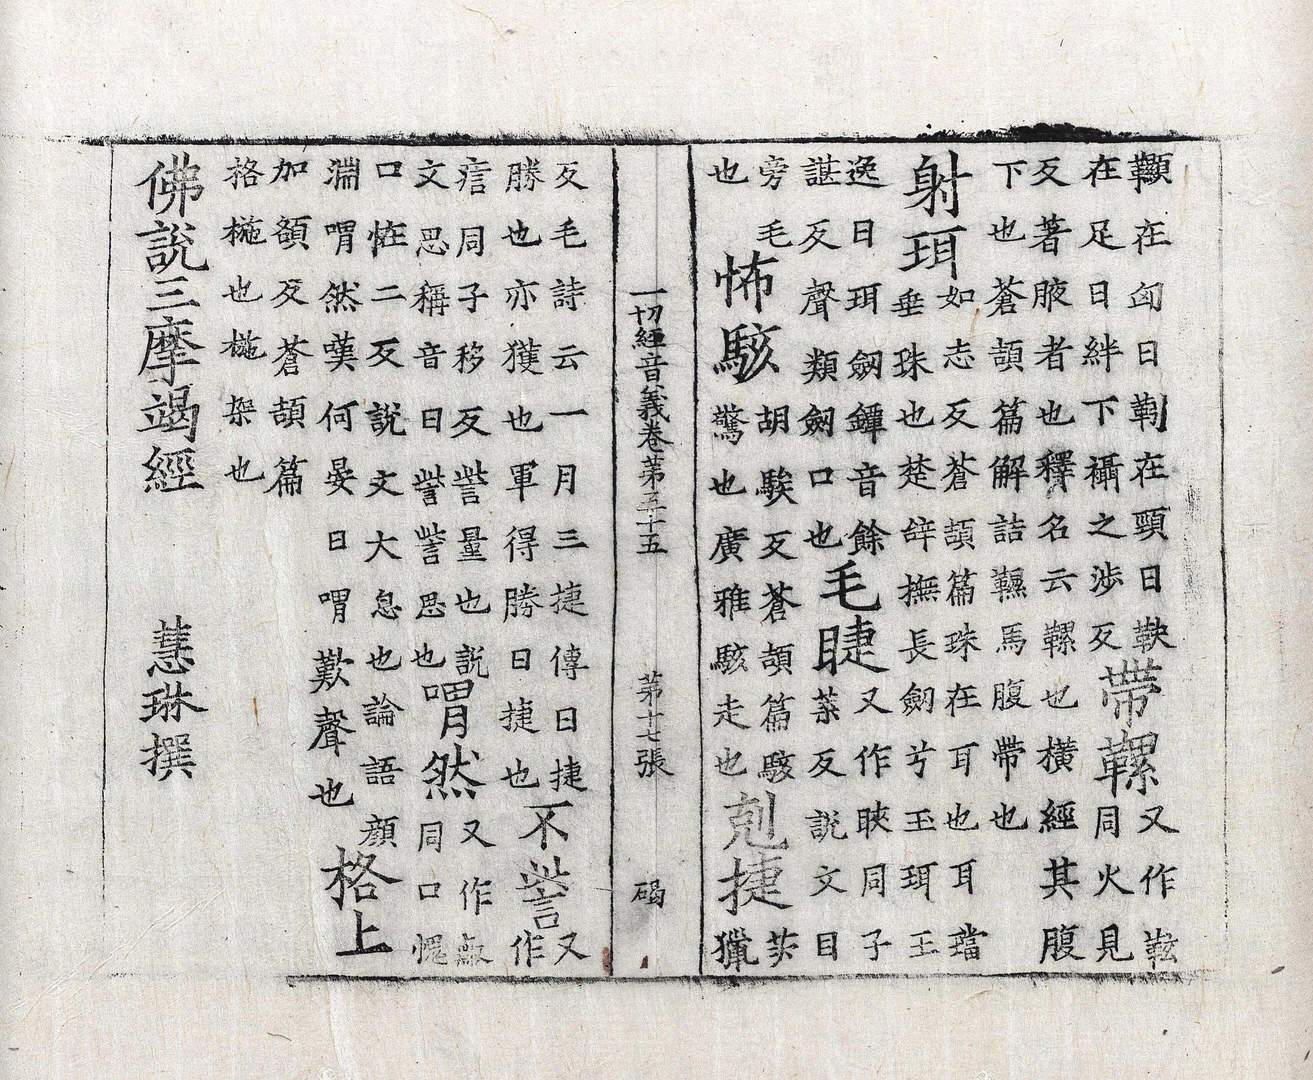 韅在匈曰靷在頸曰鞅
在足曰絆下襵之涉反
帶
又作
同火見
反著腋者也釋名云也橫經其腹
下也蒼頡篇解詰韅馬腹帶也
射珥
如志反蒼頡篇珠在耳也耳璫
垂珠也楚辝撫長劒兮玉珥王
逸曰珥劒鐔音餘
諶反聲類劒口也
毛睫
又作䀹同子
葉反說文目
旁毛
也
怖駭
胡騃反蒼頡篇駭
驚也廣雅駭走也
剋捷
獵
一切經音義卷第五十五 第十七張 碣
反毛詩云一月三捷傳曰捷
勝也亦獲也軍得勝曰捷也
不訾
又
作
同子移反訾量也說
文思稱音曰訾訾思也
喟然
又作
同口愧
口恠二反說文大息也論語顏
淵喟然嘆何晏曰喟歎聲也
格上
加額反蒼頡篇
格椸也椸架也
佛說三摩竭經 慧琳撰